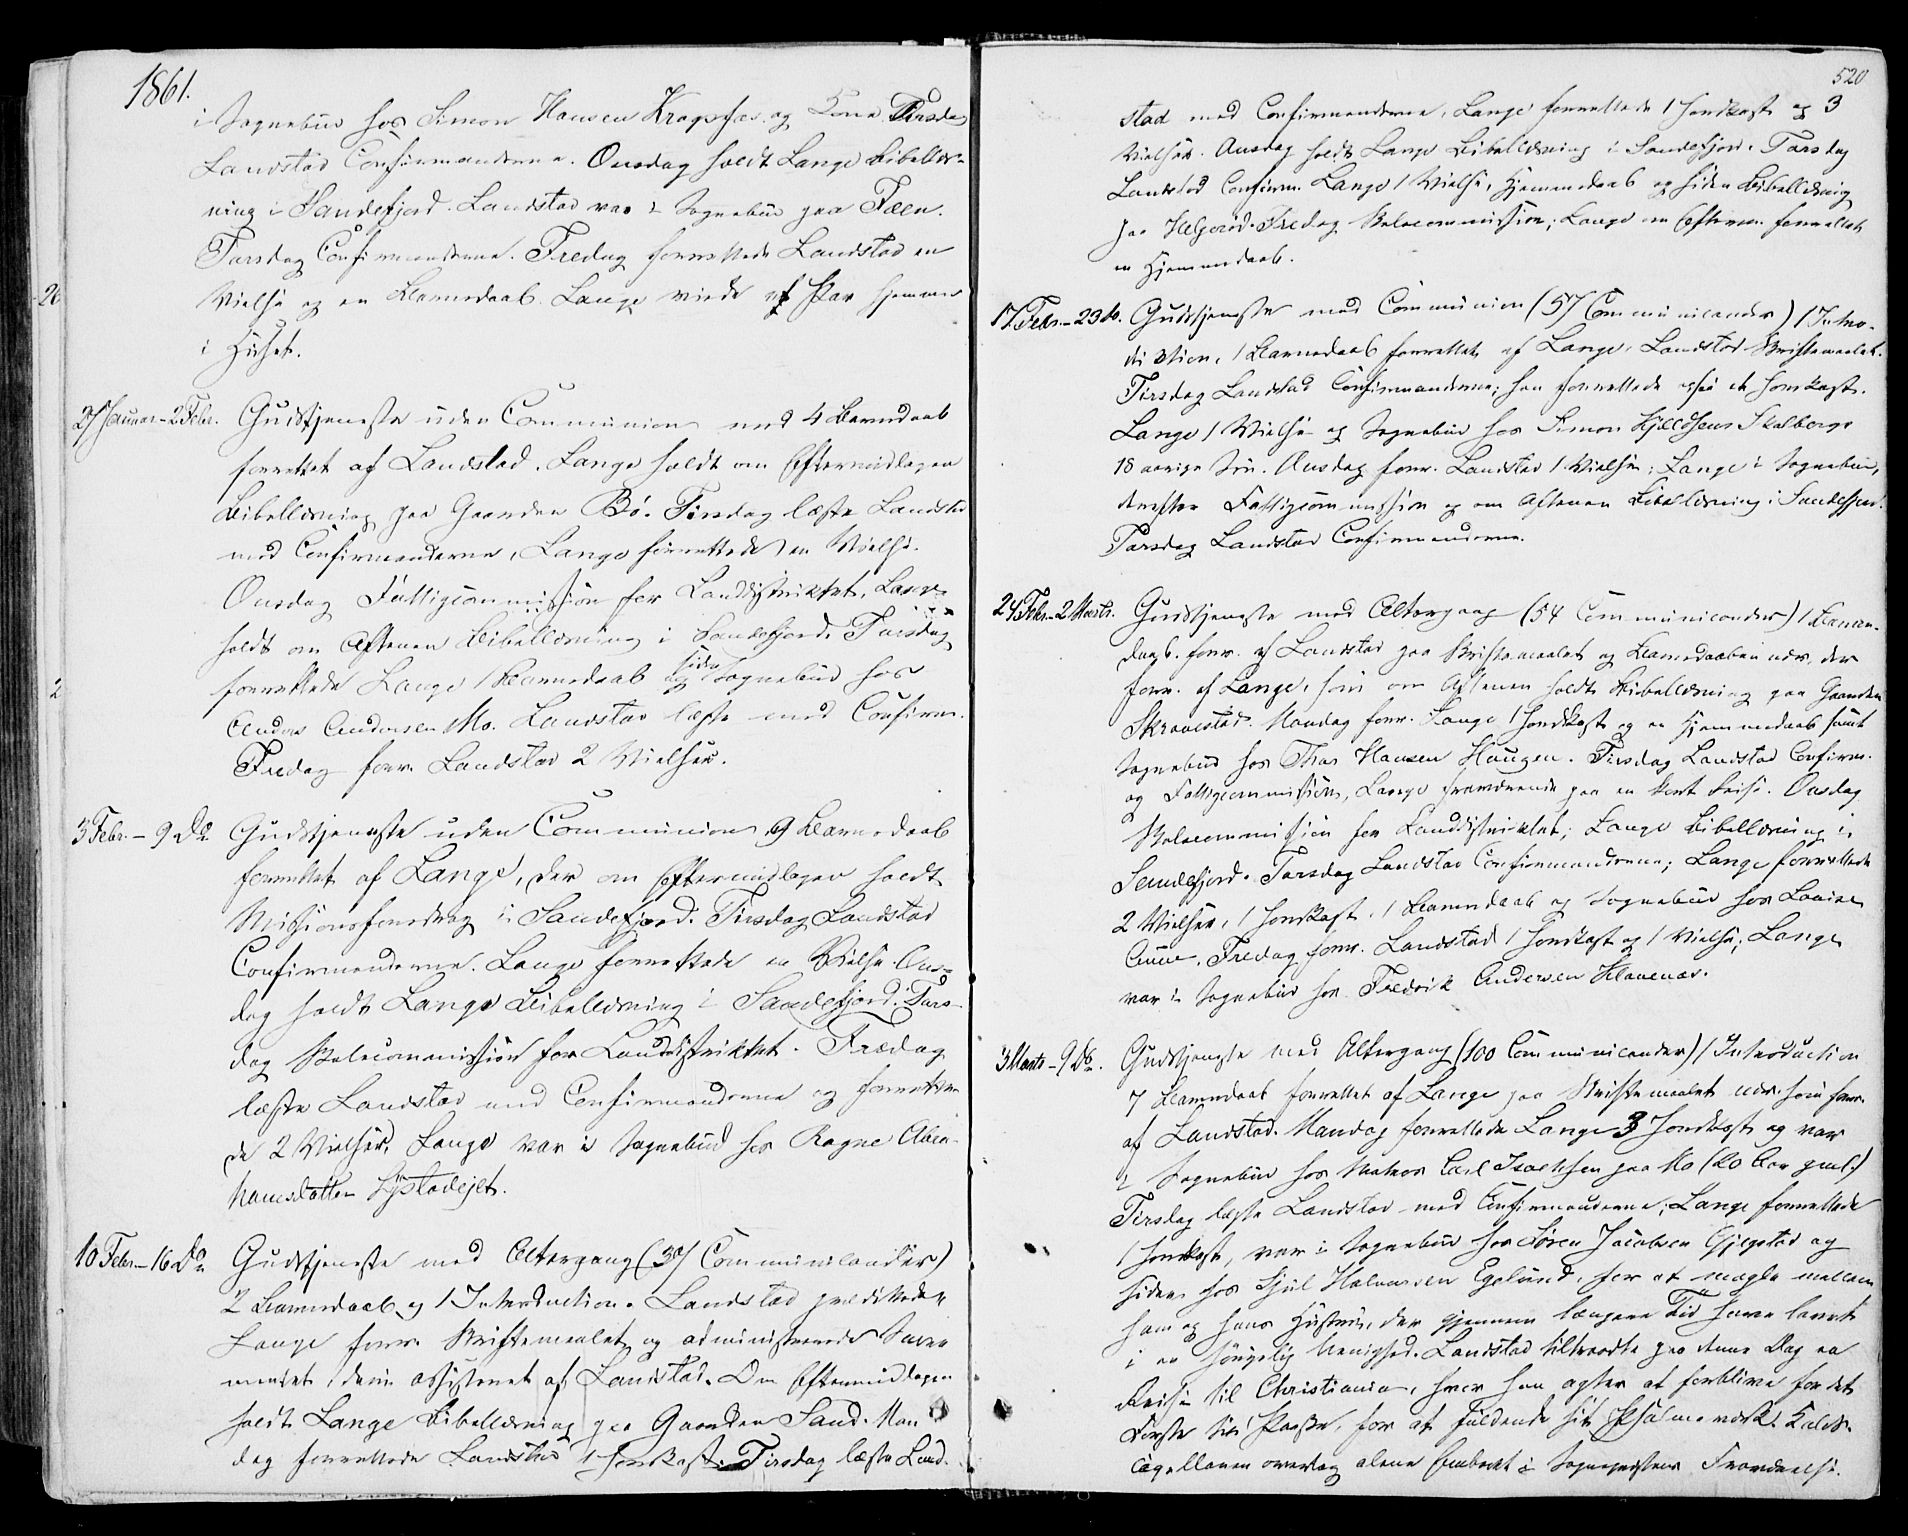 1861.
i Sognebud hos Simon Hansen Kragsføe og Kone Tirsdag
Landstad Confirmanderne. Onsdag holdt Lange Bibellæs-
ning i Sandefjord. Landstad var i Sognebud paa Feen.
Torsdag Confirmanderne. Fredag forrettede Landstad en
Vielse og en Barnedaab. Lange viede et Par hjemme
i Huset.
27 Januar - 2 Febr. Gudstjeneste uden Communion med 4 Barnedaab
forrettet af Landstad. Lange holdt om Eftermiddagen
Bibellæsning paa Gaarden Bø. Tirsdag læste Landstad
med Confirmanderne, Lange forrettede en Vielse.
Onsdag Fattigcommission for Landdistriktet, Lange
holdt om Aftenen Bibellæsning i Sandefjord. Torsdag
forrettede Lange 1 Barnedaab og siden Sognebud hos
Anders Andersen Mo. Landstad læste med Confirm.
Fredag forr. Landstad 2 Vielser.
3 Febr. - 9 Do Gudstjeneste uden Communion, 9 Barnedaab
forrettet af Lange, der om Eftermiddagen holdt
Missionsforedrag i Sandefjord. Tirsdag Landstad
Confirmanderne. Lange forrettede en Vielse. Ons-
dag holdt Lange Bibellæsning i Sandefjord. Tors-
dag Skolecommission for Landdistriktet. Fredag
læste Landstad med Confirmanderne og forrette-
de 2 Vielser, Lange var i Sognebud hos Ragne Abra-
hamsdatter
10 Febr. - 16 Do Gudstjeneste med Altergang (39 Communicander)
2 Barnedaab og 1 Introduction. Landstad prædikede,
Lange forr. Skriftemaalet og administrerede Sacra
mentet, deri assisteret af Landstad. Om Eftermiddagen
holdt Lange Bibellæsning paa Gaarden Sand. Man
dag forrettede Landstad 1 Jordkast. Tirsdag læste Land-
520
stad med Confirmanderne, Lange forrettede 1 Jordkast og 3
Vielser. Onsdag holdt Lange Bibellæsning i Sandefjord. Torsdag
Landstad Confirm. Lange 1 Vielse, Hjemmedaab og siden Bibellæsning
paa Helgerød. Fredag Skolecommission; Lange om Efterm. forrettet
en Hjemmedaab.
17 Febr. - 23 do. Gudstjeneste med Communion (57 Communicander) 1 Intro-
duction, 1 Barnedaab forrettet af Lange, Landstad Skriftemaalet.
Tirsdag Landstad Confirmanderne; han forrettede og saa et Jordkast.
Lange 1 Vielse og Sognebud hos Simon Kjeldsens Skalbergs
18 aarige Søn. Onsdag forr. Landstad 1 Vielse; Lange i Sognebud,
derefter Fattigcommission og om Aftenen Bibellæsning i Sandefjord.
Torsdag Landstad Confirmanderne.
24 Febr. - 2 Marts. Gudstjeneste med Altergang (54 Communicander) 1 Barne-
daab. forr. af Landstad paa Skriftemaalet og Barnedaaben nær, der
forr. af Lange, som om Aftenen holdt Bibellæsning paa Gaarden
Skravestad. Mandag forr. Lange 1 Jordkast og en Hjemmedaab samt
Sognebud hos Thor Hansen Haugen. Tirsdag Landstad Confirm.
og Fattigcommission, Lange fraværende paa en kort Reise. Onsdag
Skolecommission for Landdistriktet; Lange Bibellæsning i
Sandefjord. Torsdag Landstad Confirmanderne; Lange forrettede
2 Vielser, 1 Jordkast, 1 Barnedaab og Sognebud hos Louise
Fredag forr. Landstad 1 Jordkast og 1 Vielse; Lange
var i Sognebud hos Fredrik Andersen Klavenæs.
3 Marts - 9 Do. Gudstjeneste med Altergang (100 Communicander) 1 Introduction
7 Barnedaab forrettet af Lange paa Skriftemaalet nær, som forr.
af Landstad. Mandag forrettede Lange 3 Jordkast og var
i Sognebud hos Matros Carl Isachsen paa Mo (20 Aar gml.)
Tirsdag læste Landstad med Confirmanderne; Lange forrettede
1 Jordkast, var i Sognebud hos Søren Jacobsen Gjegstad og
siden hos Hjul Halvorsen Eglund, for at mægle mellem
ham og hans Hustru, der gjennem længere Tid have levet
i en sørgelig Uenighed. Landstad tiltraadte paa denne Dag en
Reise til Christiania, hvor han agter at forblive for det
Første til Paaske, for at fuldende sit Psalmeværk. Kalds-
capellanen overtog alene Embedet i Sognepræstens Fraværelse.